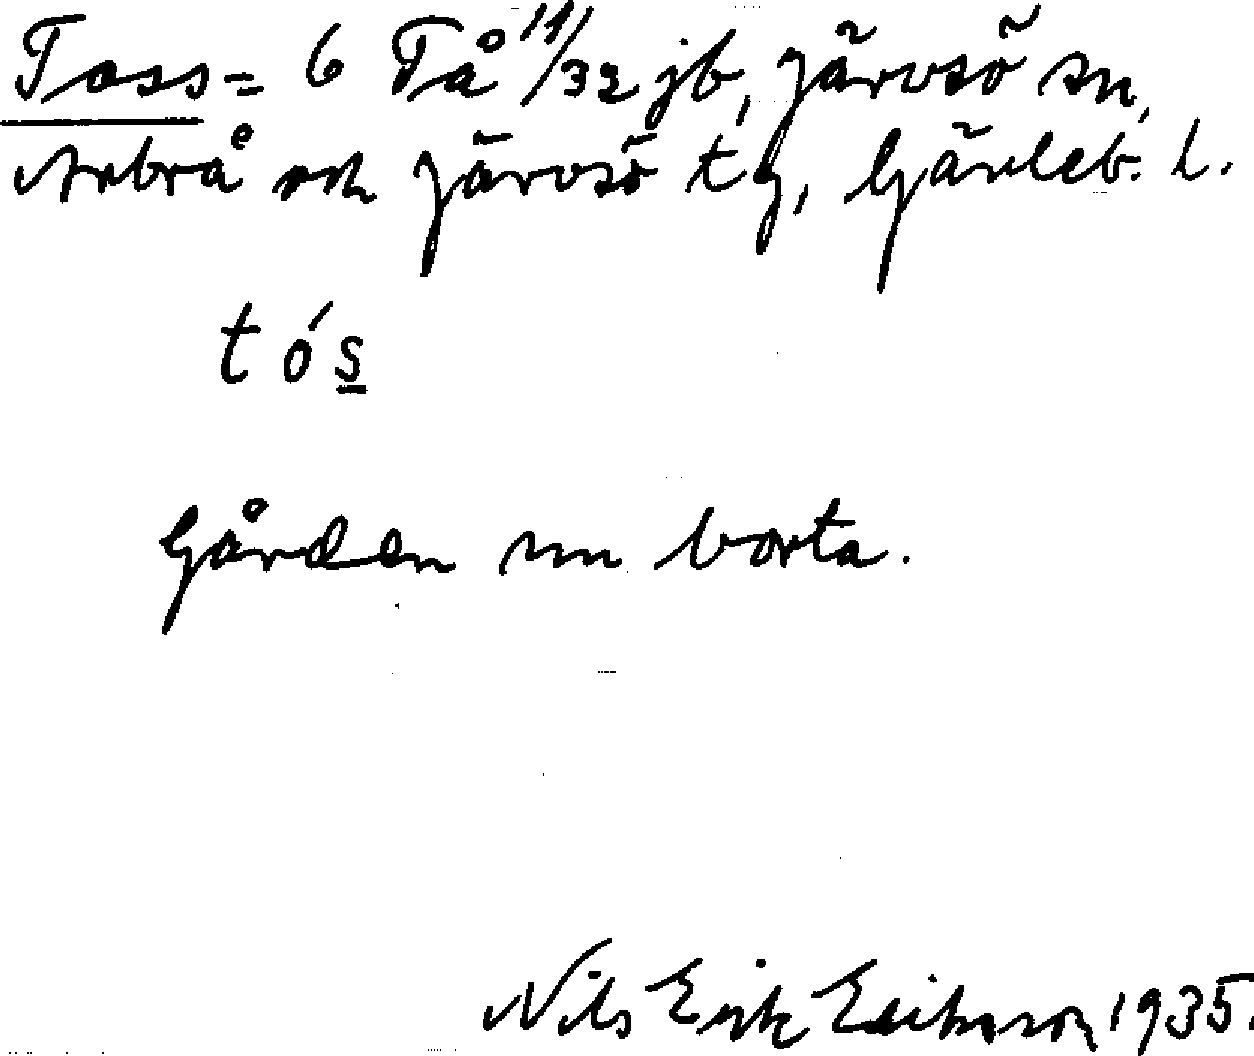 Toss= 6 Tå 11/32 jb, Järvsö sn,
Arbrå och Järvsö tg, Gävleb. l.
tós
Gården nu borta.
Nils Erik Eriksson 1935.